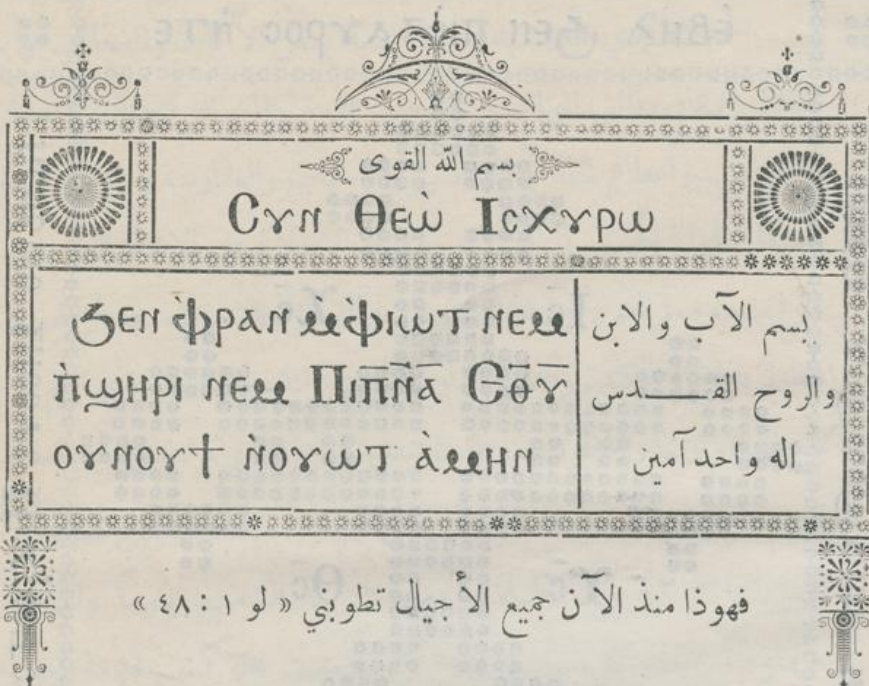 بسم الله القوى
Ⲥⲩⲛ Ⲑⲉⲱ̀ Ⲓⲥⲭⲩⲣⲱ
Ϧⲉⲛ ⲫ̀ⲣⲁⲛ ⲙ̀ⲫ̀ⲓⲱⲧ ⲛⲉⲙ
ⲡ̀ϣⲏⲣⲓ ⲛⲉⲙ Ⲡⲓⲡ̅ⲛ̅ⲁ̅ Ⲉ̅ⲑ̅ⲩ̅
ⲟⲩⲛⲟⲩϯ ⲛ̀ⲟⲩⲱⲧ ⲁ̀ⲙⲏⲛ
بسم الآب والابن
والروح القـــدس
اله واحد آمين
فهوذا منذ الآن جميع الأجيال تطوبني « لو ١ : ٤٨ »